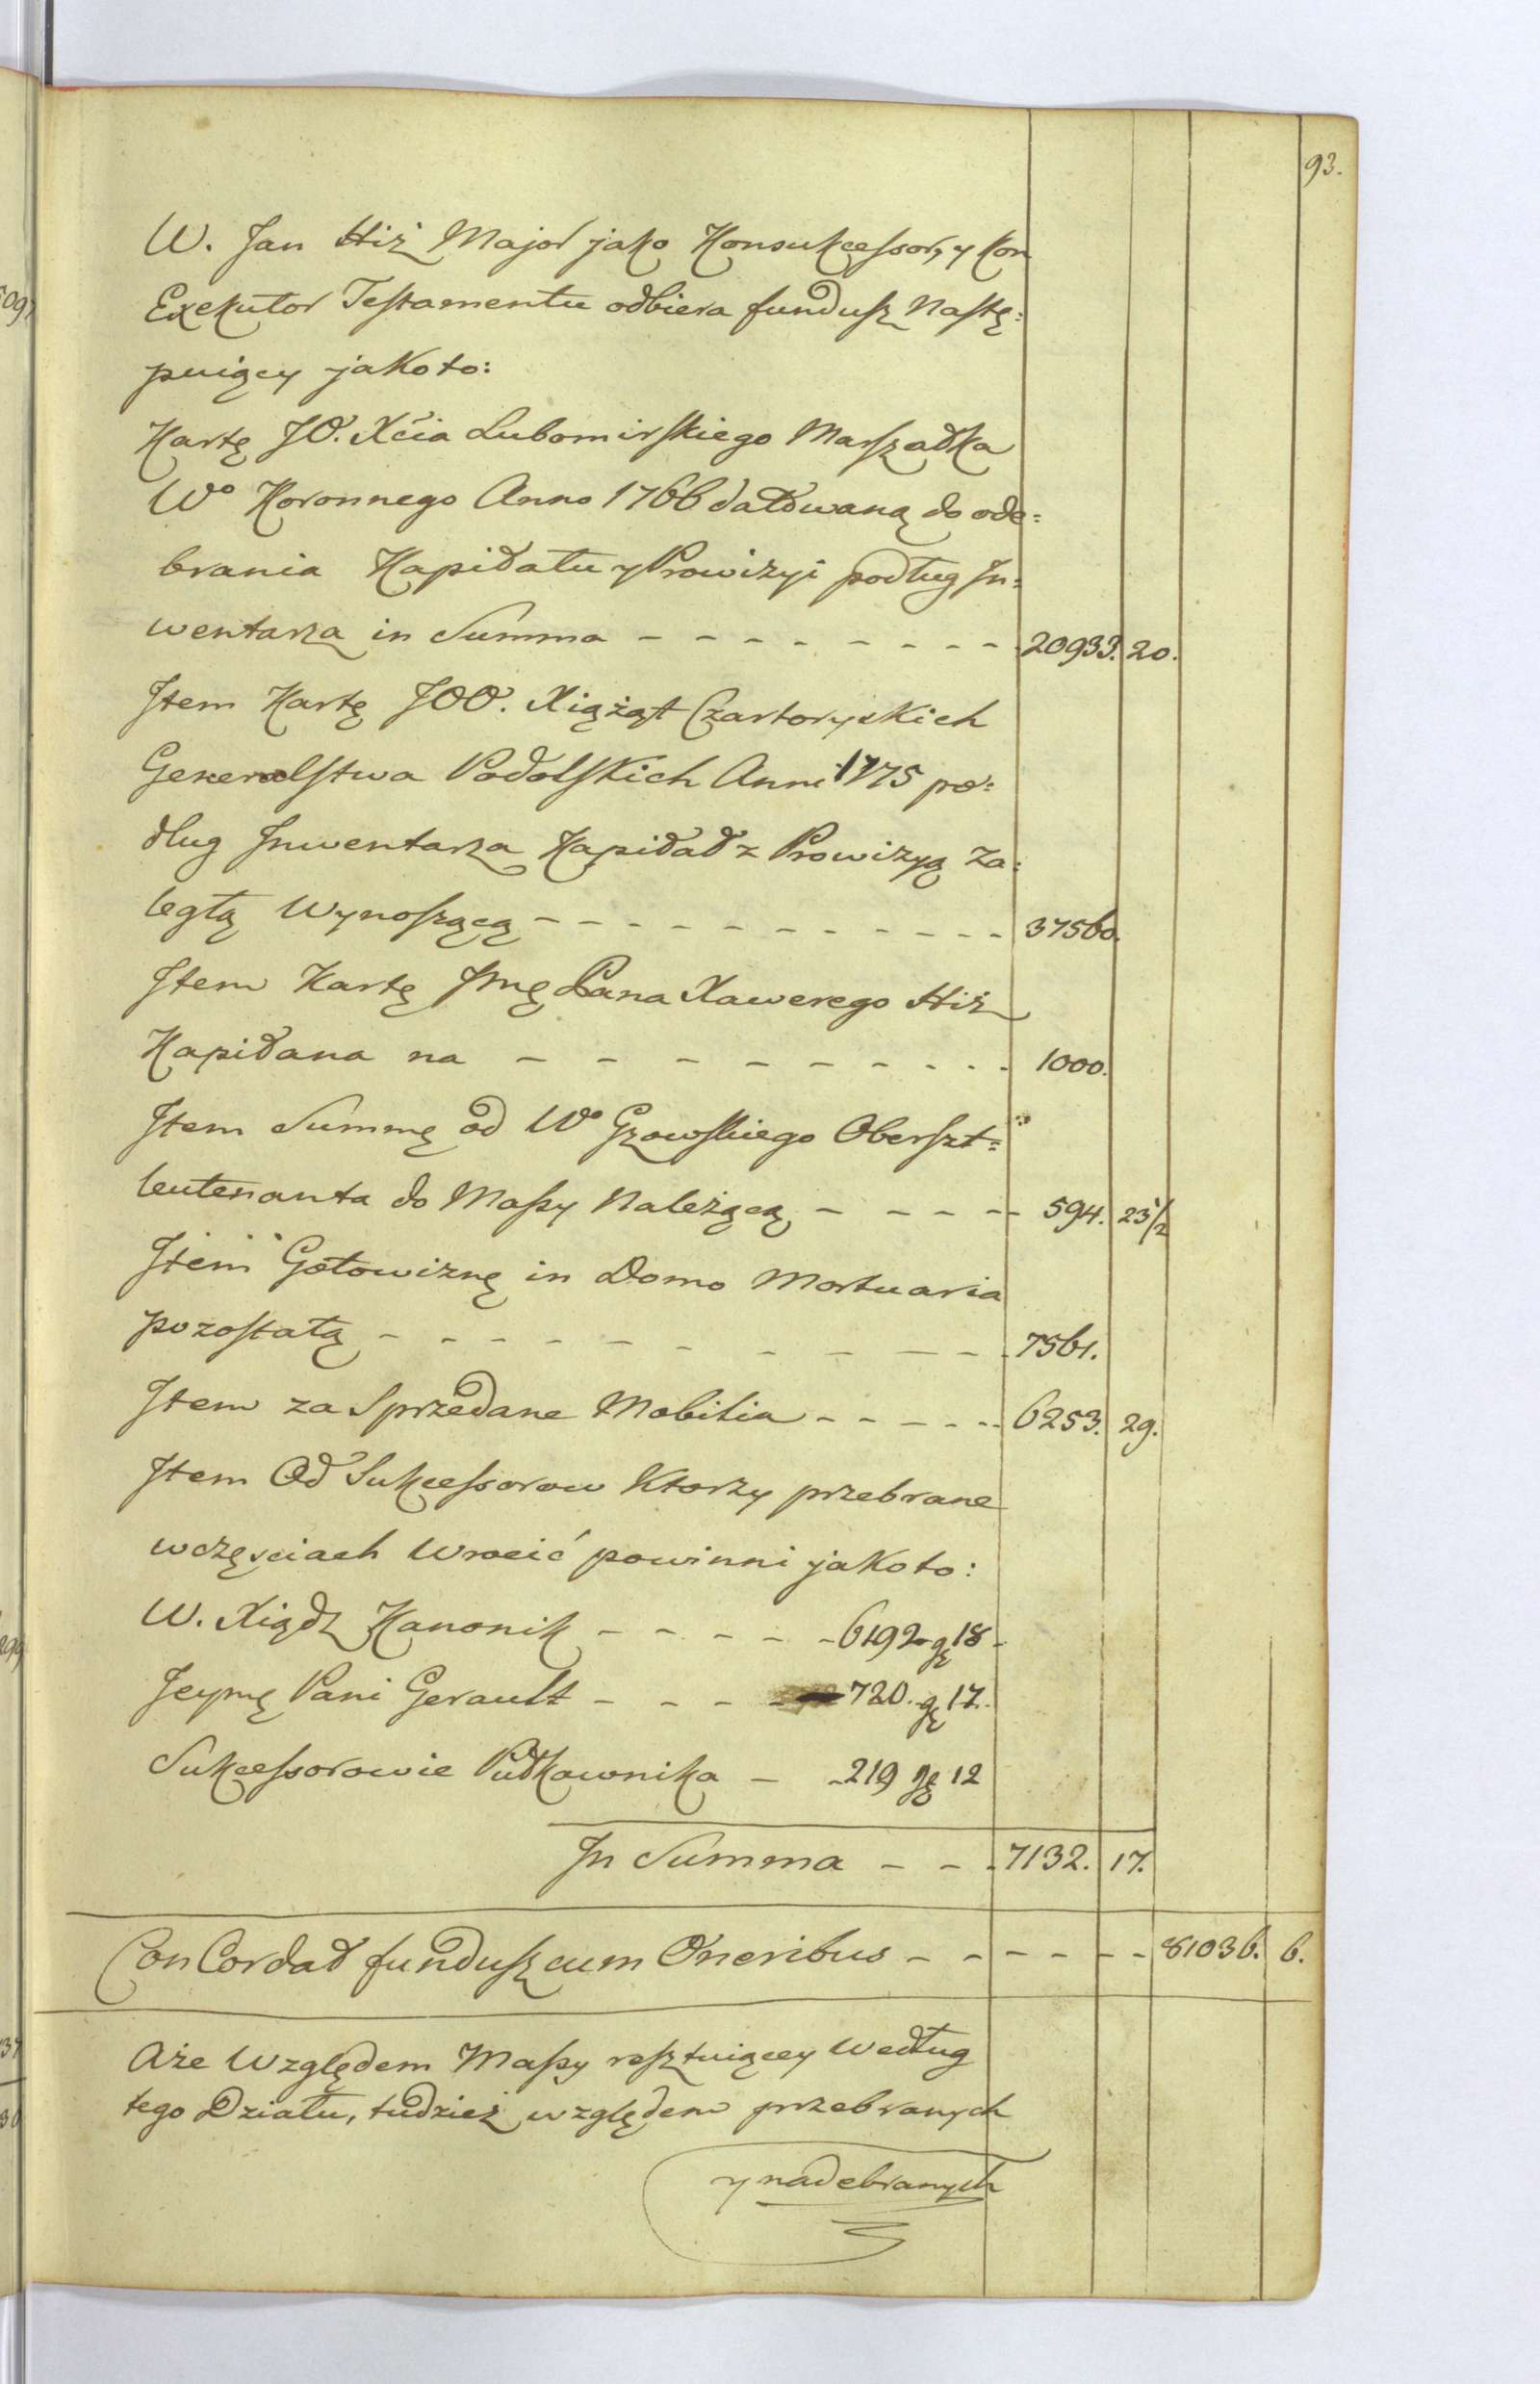 93.
W. Jan Hiż Major jako Konsukcessor, y kon
Exekutor Testamentu odbiera fundusz Nastę:
puiący jakoto:
Kartę JO. Xcia Lubomirskiego Marszałka
Wo Koronnego Anno 1766 datowaną do ode:
brania Kapitału y Prowizyi podług In:
wentarza in Summa - - - - - - - - 20933. 20.
Item Kartę JOO. Xiążąt Czartoryskich
Generalstwa Podolskich Anni 1775 po:
dług Inwentarza Kapitał z Prowizyą Za:
ległą Wynoszącą - - - - - - - - - - - 37560.
Item Kartę Jmę Pana Xawerego Hiż
Kapitana na - - - - - - - - - 1000.
Item Summę od Wo Gzowskiego Oberszt=
leutenanta do Massy Należącą - - - - 594. 23 1/2
Item Gotowiznę in Domo Mortuaria
pozostałą - - - - - - - - - - - 7561.
Item za Sprzedane Mobilia - - - - - 6253. 29.
Item Od Sukcessorow Ktorzy przebrane
wczęsciach Wrocić powinni jakoto:
W. Xiądz Kanonik - - - - - 6192 gę 18 -
Jeymę Pani Gerault - - - - 720. gę 17.
Sukcessorowie Pułkownika - - 219 gę 12
In Summa - - - 7132. 17.
ConCordat fundusz cum Oneribus - - - - - - 81036. 6.
Aże Względem Massy resztuiącey Według
tego Działu, tudzież względem przebranych
y nadebranych